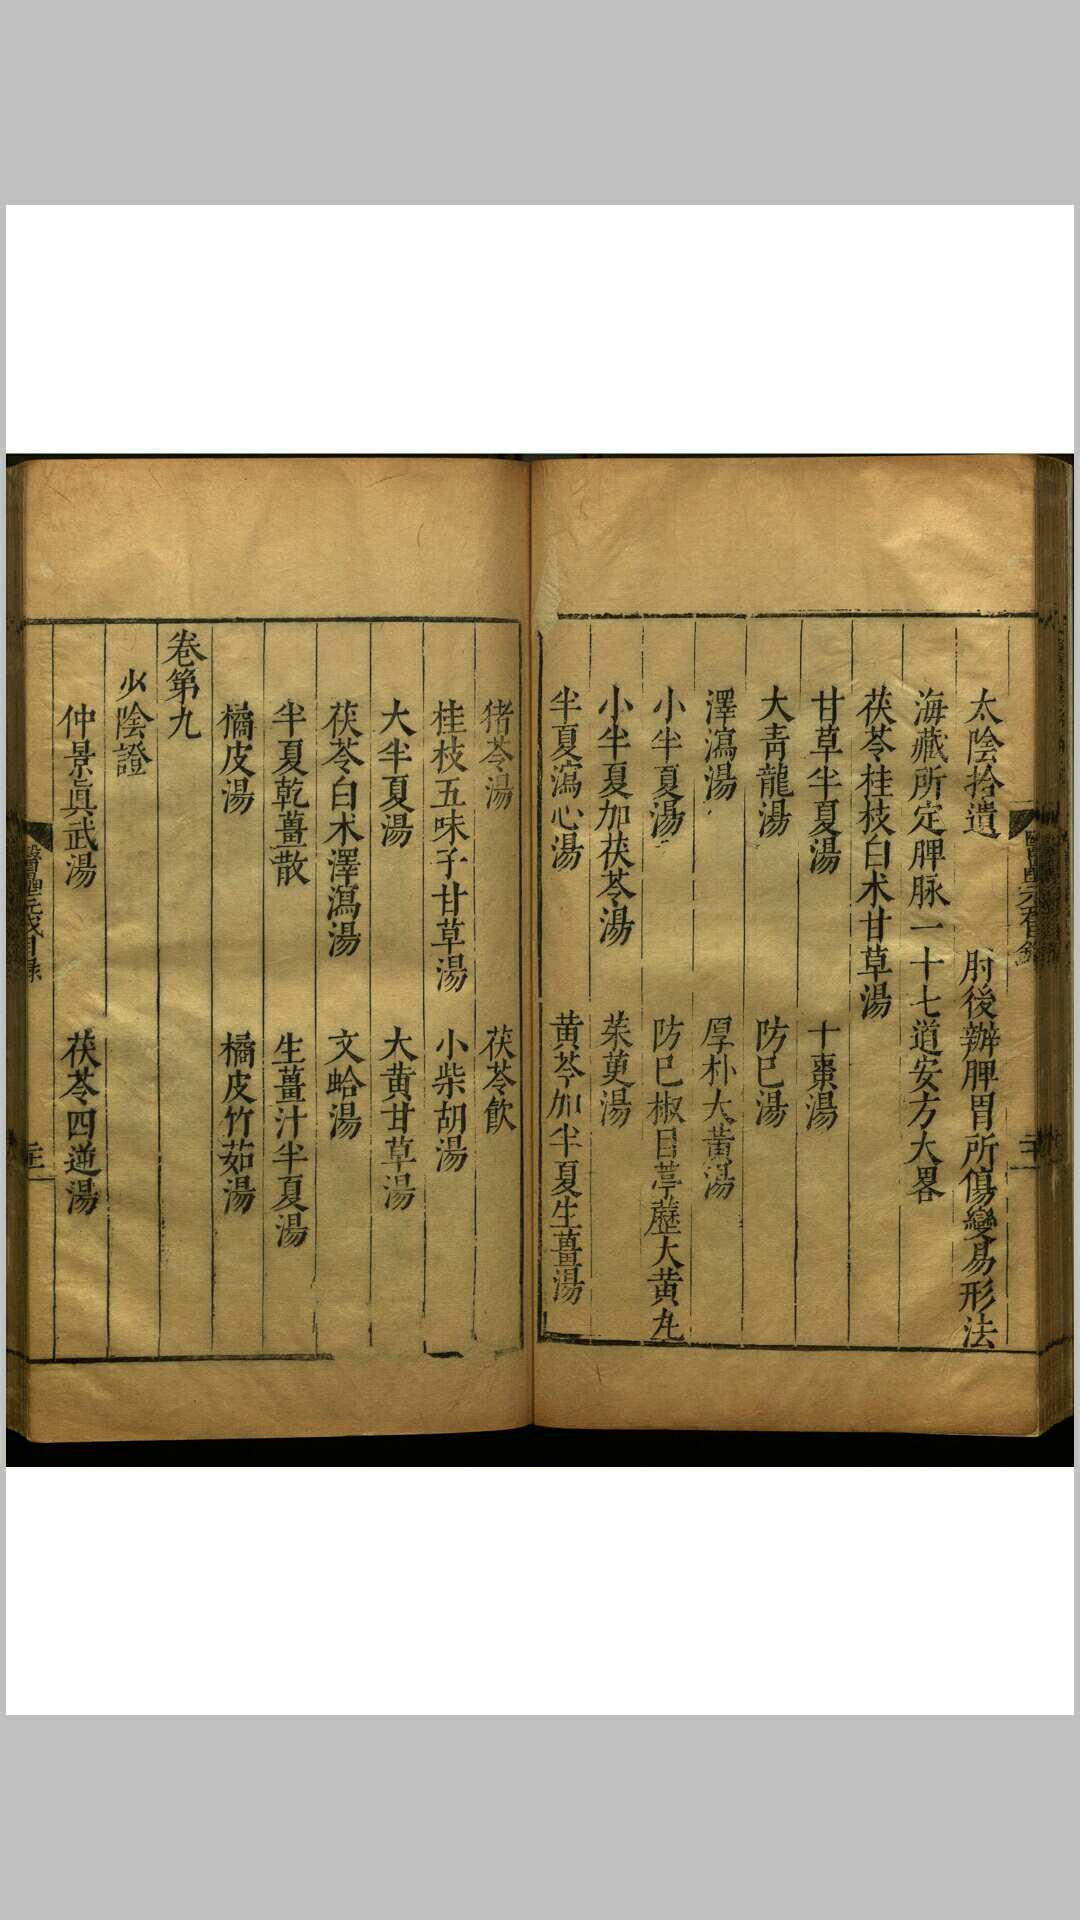 太陰拾遺　肘後辦脾胃所傷變易形法
海藏所定脾脉一十七道安方大畧
茯苓桂枝白术甘草湯
甘草半夏湯　十棗湯
大青龍湯　防已湯
澤瀉湯　厚朴大黃湯
小半夏湯　防已椒目葶藶大黄丸
小半夏加茯苓湯　茱萸湯
半夏瀉心湯　黄芩加半夏生薑湯
猪苓湯　茯苓飲
桂枝五味子甘草湯　小柴胡湯
大半夏湯　大黄甘草湯
茯苓白术澤瀉湯　文蛤湯
半夏乾薑散　生薑汁半夏湯
橘皮湯　橘皮竹茹湯
卷第九
少陰證
仲景眞武湯　茯苓四逆湯